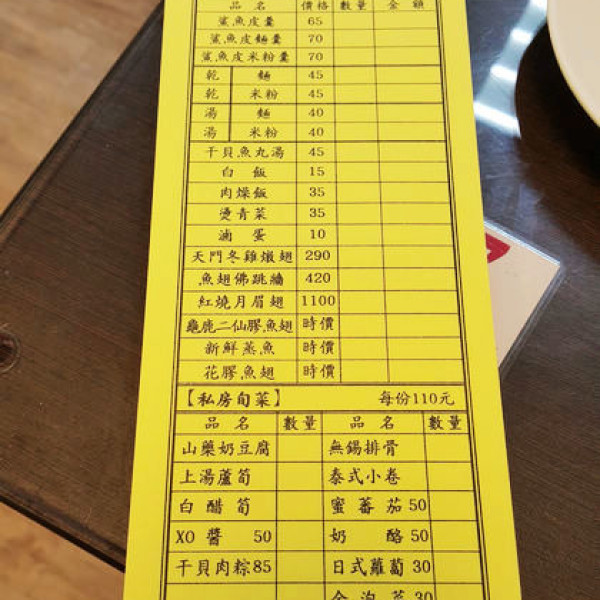 品名 價格 數量 金額
鯊魚皮羹 65
鯊魚皮麵羹 70
鯊魚皮米粉羹 70
乾 麵 45
乾 米粉 45
湯 麵 40
湯 米粉 40
干貝魚丸湯 45
白飯 15
肉燥飯 35
燙青菜 35
滷蛋 10
天門冬雞燉翅 290
魚翅佛跳牆 420
紅燒月眉翅 1100
龜鹿二仙膠魚翅 時價
新鮮蒸魚 時價
花膠魚翅 時價
【私房旬菜】 每份110元
品名 數量 品名 數量
山藥奶豆腐 無錫排骨
上湯蘆筍 泰式小卷
白醋筍 蜜蕃茄50
XO醬 50 奶酪50
干貝肉粽85 日式蘿蔔30
泡菜30